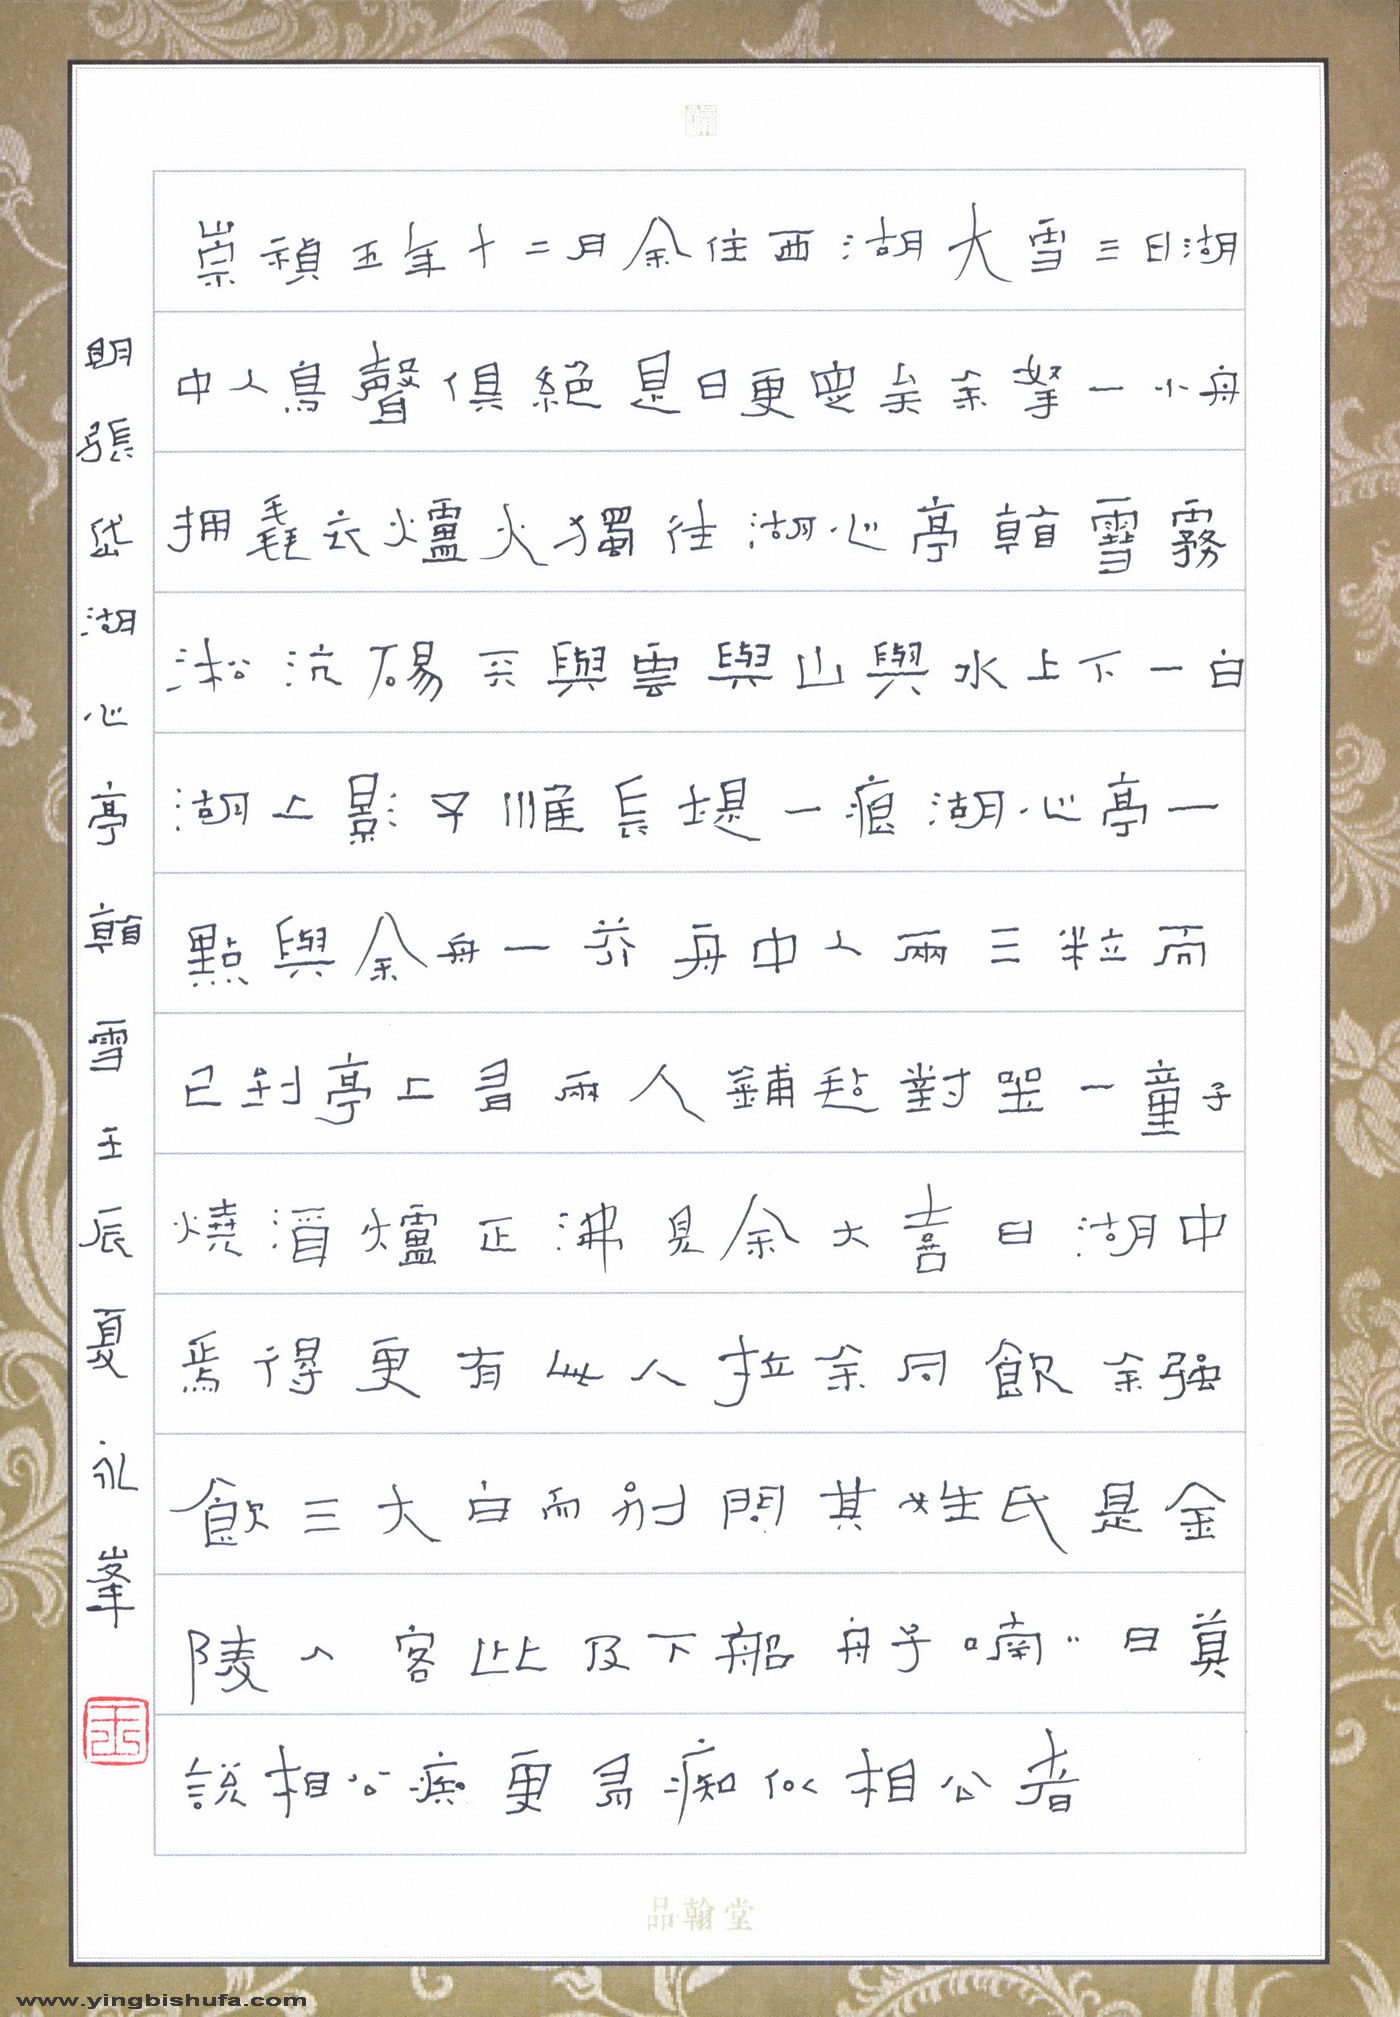 崇禎五年十二月余住西湖大雪三日湖
中人鳥聲俱絕是日更定矣余拏一小舟
拥毳衣爐火獨往湖心亭看雪霧
淞沆碭天與雲與山與水上下一白
湖上影子惟長堤一痕湖心亭一
點與余舟一芥舟中人兩三粒而
已到亭上有兩人鋪毡對坐一童子
燒酒爐正沸見余大喜曰湖中
焉得更有此人拉余同飲余强
飲三大白而別問其姓氏是金
陵人客此及下船舟子喃〃曰莫
說相公痴更有痴似相公者
明張岱湖心亭看雪壬辰夏永峯
品翰堂
www.yingbishufa.com